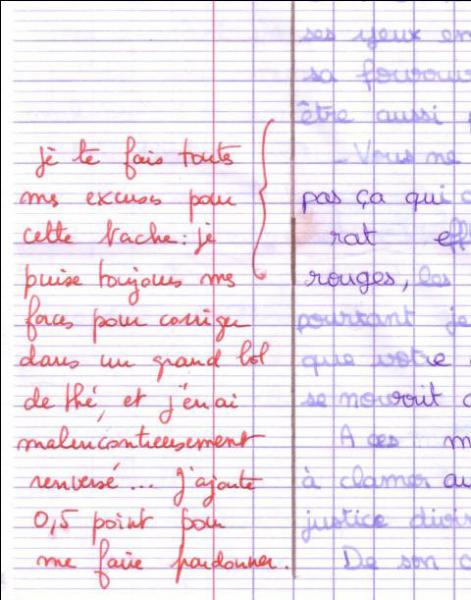 je te fais toutes
mes excuses pour
cette tache : je
puise toujours mes
forces pour corriger
dans un grand bol
de thé, et j'en ai
malencontreusement
renversé... j'ajoute
0,5 point pour
me faire pardonner.
ses yeux
sa
être aussi
- Vous ne
pas ça qui
rat
rouges, les
pourtant je
que votre
se nourrit
A ces
à clamer
justice
De son